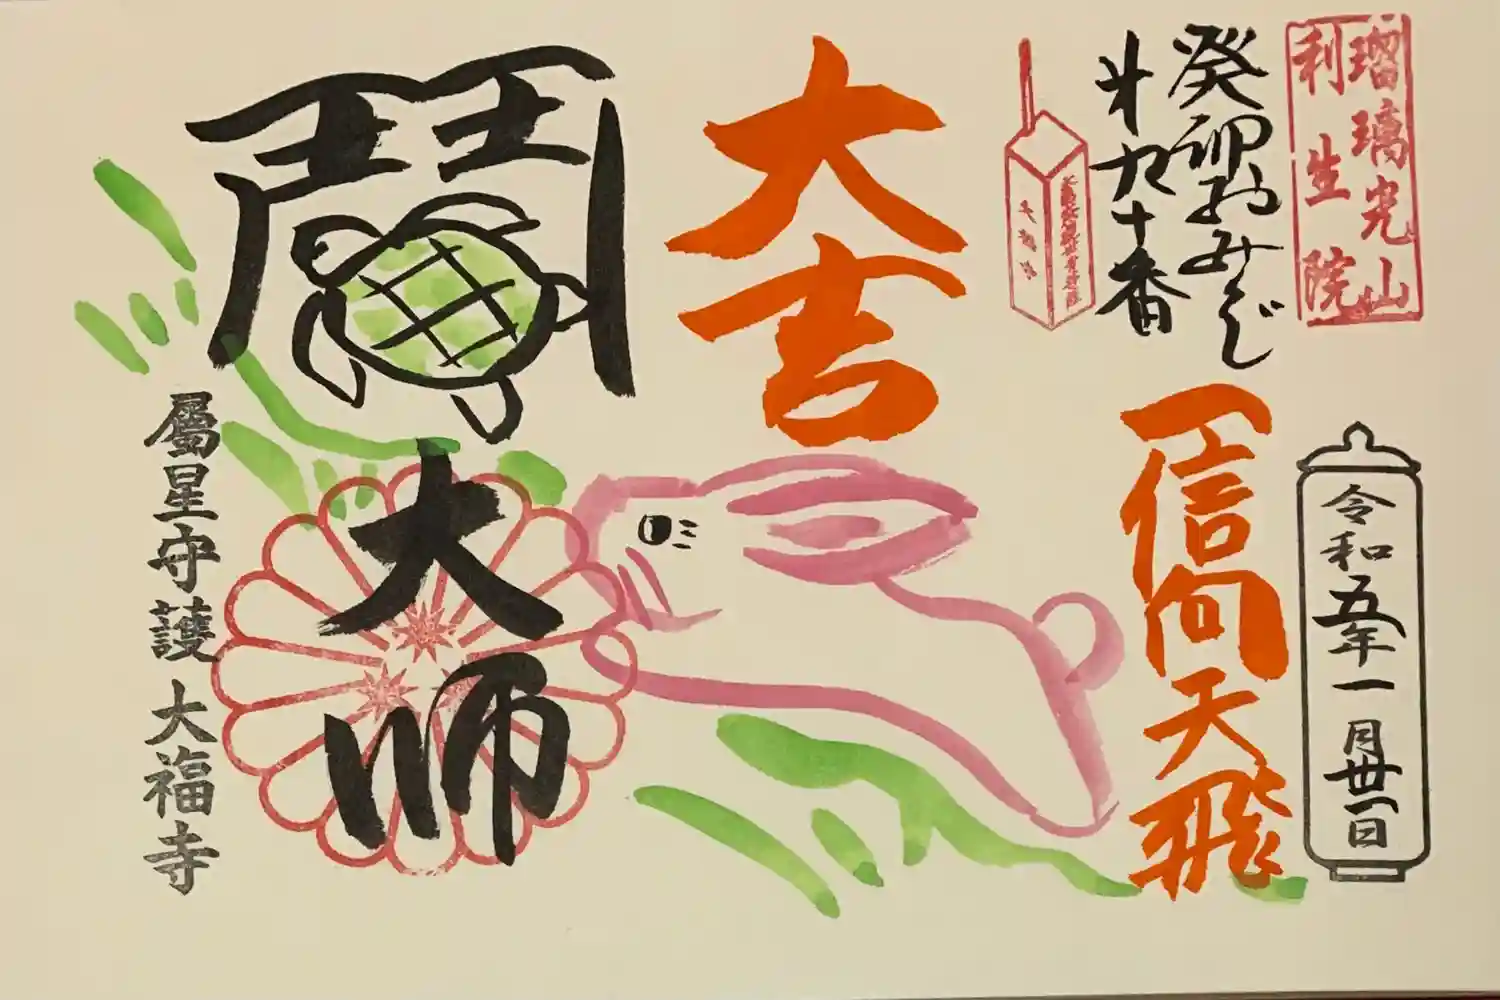 瑠璃光山
利生院
癸卯おみくじ
第九十番
大吉
一信向天飛
令和五年一月卅一日
大師
属星守護 大福寺